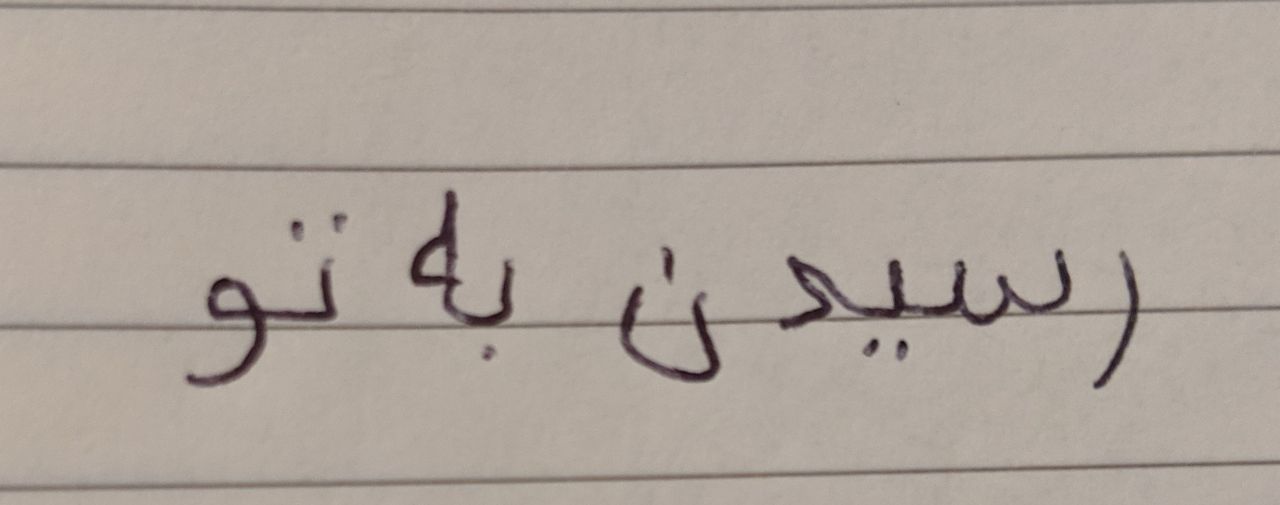 رسیدن به تو